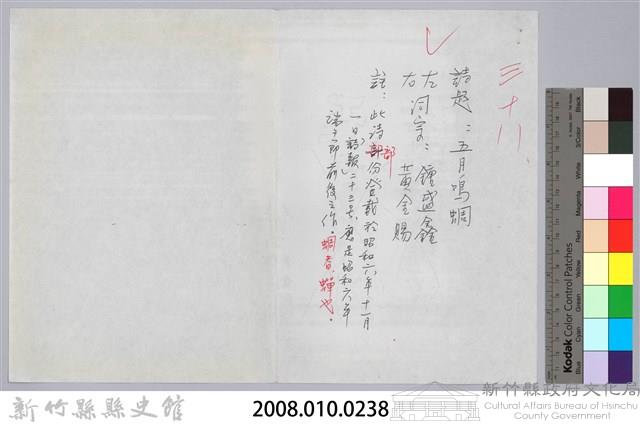 三十八
詩題：五月鳴蜩
左詞宗：鍾盛鑫
右　　黃金賜
註：此詩部份登載於昭和六年十一月
一日詩報二十三号，應是昭和六年
前後之作。蜩者蟬也。
新竹縣縣史館
2008.010.0238
新竹縣政府文化局
Cultural Affairs Bureau of Hsinchu
County Government
Kodak Color Control Patches
Blue
Cyan
Green
Yellow
Red
Magenta
White
3/Color
Black